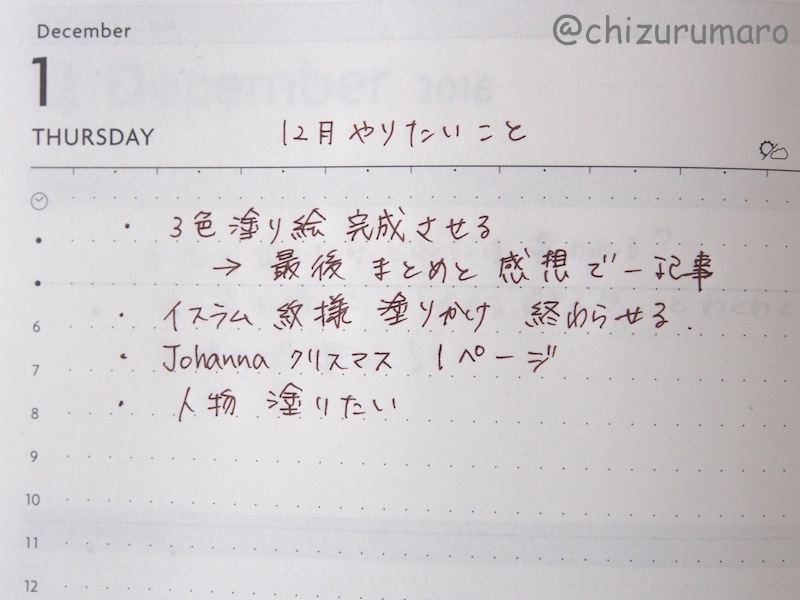 @chizurumaro
December
1
THURSDAY
12月やりたいこと
・3色塗り絵 完成させる
→ 最後 まとめと 感想で一記事
・イスラム 紋様 塗りかけ 終わらせる.
6
・Johanna クリスマス 1ページ
7
・人物 塗りたい
8
9
10
11
12